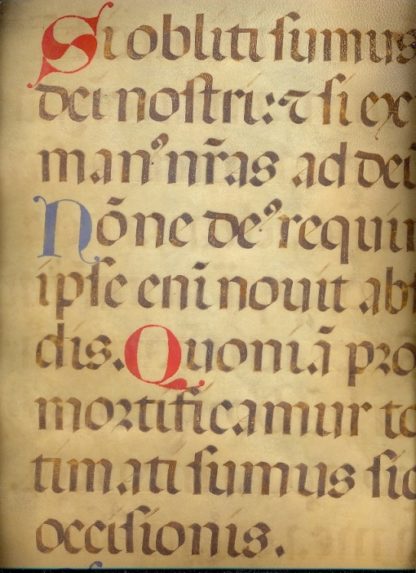 Si obliti sumus
dei nostri: ⁊ si ex
manꝰ nr̃as ad dei
Nõne deꝰ requi
ipse enĩ nouit abs
dis. Quoniã pro
mortificamur to
timati sumus sic
occisionis.